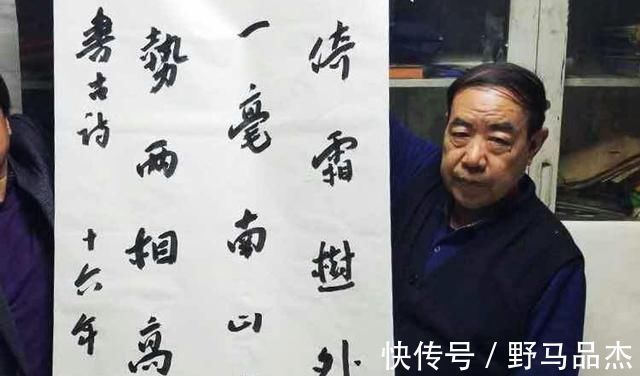 倚霜樹外
一毫南山
勢兩相高
書古詩 十六年
快传号 / 野马品杰